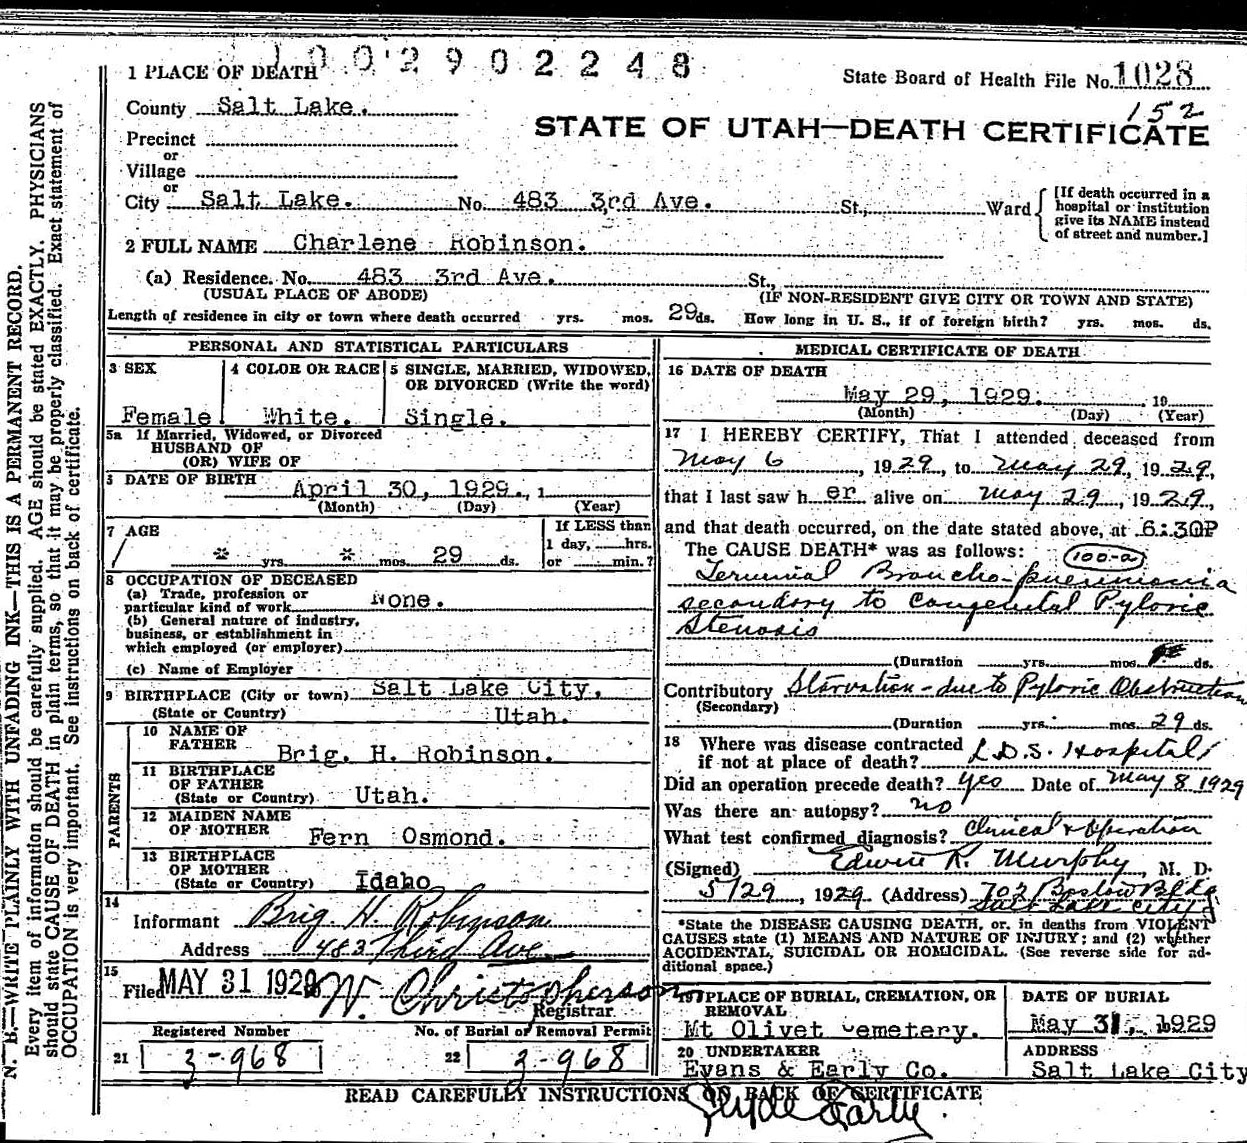 1002902248
1 PLACE OF DEATH
State Board of Health File No. 1028
152
County Salt Lake.
STATE OF UTAH—DEATH CERTIFICATE
Precinct
or
Village
or
City Salt Lake. No. 483 3rd Ave. St., Ward
[If death occurred in a
hospital or institution
give its NAME instead
of street and number.]
2 FULL NAME Charlene Robinson.
(a) Residence. No. 483 3rd Ave. St.,
(USUAL PLACE OF ABODE) (IF NON-RESIDENT GIVE CITY OR TOWN AND STATE)
Length of residence in city or town where death occurred yrs. mos. 29 ds. How long in U. S., if of foreign birth? yrs. mos. ds.
PERSONAL AND STATISTICAL PARTICULARS
3 SEX
Female
4 COLOR OR RACE
White.
5 SINGLE, MARRIED, WIDOWED,
OR DIVORCED (Write the word)
Single.
5a If Married, Widowed, or Divorced
HUSBAND OF
(OR) WIFE OF
DATE OF BIRTH
April 30, 1929., 1
(Month) (Day) (Year)
7 AGE
* yrs. * mos. 29 ds.
If LESS than
1 day, hrs.
or min.?
8 OCCUPATION OF DECEASED
(a) Trade, profession or
particular kind of work None.
(b) General nature of industry,
business, or establishment in
which employed (or employer)
(c) Name of Employer
9 BIRTHPLACE (City or town) Salt Lake City,
(State or Country) Utah.
PARENTS
10 NAME OF
FATHER Brig. H. Robinson.
11 BIRTHPLACE
OF FATHER
(State or Country) Utah.
12 MAIDEN NAME
OF MOTHER Fern Osmond.
13 BIRTHPLACE
OF MOTHER
(State or Country) Idaho
14
Informant Brig. H. Robinson
Address 483 Third Ave
15
Filed MAY 31 1929 W. Christopherson
Registrar
Registered Number No. of Burial or Removal Permit
21 3-968 22 3-968
MEDICAL CERTIFICATE OF DEATH
16 DATE OF DEATH
May 29, 1929. 19
(Month) (Day) (Year)
17 I HEREBY CERTIFY, That I attended deceased from
May 6, 1929, to May 29, 1929,
that I last saw her alive on May 29, 1929,
and that death occurred, on the date stated above, at 6:30P
The CAUSE DEATH* was as follows: 100-a
Terminal Broncho-pneumonia
secondary to Congenital Pyloric
Stenosis
(Duration yrs. mos. ds.
Contributory Starvation - due to Pyloric Obstruction
(Secondary)
(Duration yrs. mos. 29 ds.
18 Where was disease contracted
if not at place of death? L.D.S. Hospital
Did an operation precede death? yes Date of May 8 1929
Was there an autopsy? no
What test confirmed diagnosis? Clinical & Operation
(Signed) Edwin R. Murphy, M. D.
5/29, 1929 (Address) 702 Boston Bldg
Salt Lake City
*State the DISEASE CAUSING DEATH, or in deaths from VIOLENT
CAUSES state (1) MEANS AND NATURE OF INJURY; and (2) whether
ACCIDENTAL, SUICIDAL OR HOMICIDAL. (See reverse side for ad-
ditional space.)
19 PLACE OF BURIAL, CREMATION, OR
REMOVAL
Mt Olivet Cemetery.
DATE OF BURIAL
May 31, 1929
20 UNDERTAKER
Evans & Early Co.
ADDRESS
Salt Lake City
READ CAREFULLY INSTRUCTIONS ON BACK OF CERTIFICATE
N. B.—WRITE PLAINLY WITH UNFADING INK—THIS IS A PERMANENT RECORD.
Every item of information should be carefully supplied. AGE should be stated EXACTLY. PHYSICIANS
should state CAUSE OF DEATH in plain terms, so that it may be properly classified. Exact statement of
OCCUPATION is very important. See instructions on back of certificate.